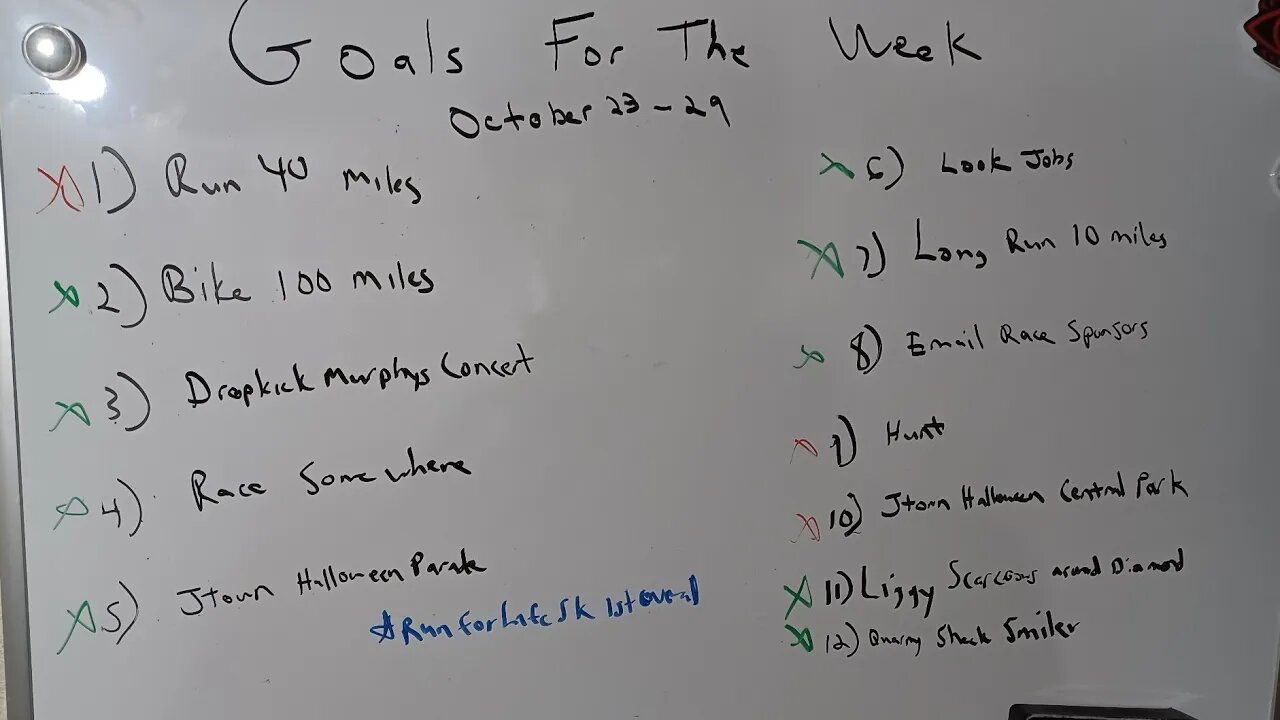 Goals For The Week
October 23-29
X 1) Run 40 miles
X 2) Bike 100 miles
X 3) Dropkick Murphys Concert
X 4) Race Somewhere
X 5) Jtown Halloween Parade
*Run For Life 5k 1st overall
X 6) Look Jobs
X 7) Long Run 10 miles
X 8) Email Race Sponsors
X 9) Hunt
X 10) Jtown Halloween Central Park
X 11) Liggy around Diamond
X 12) Quarry Smiler